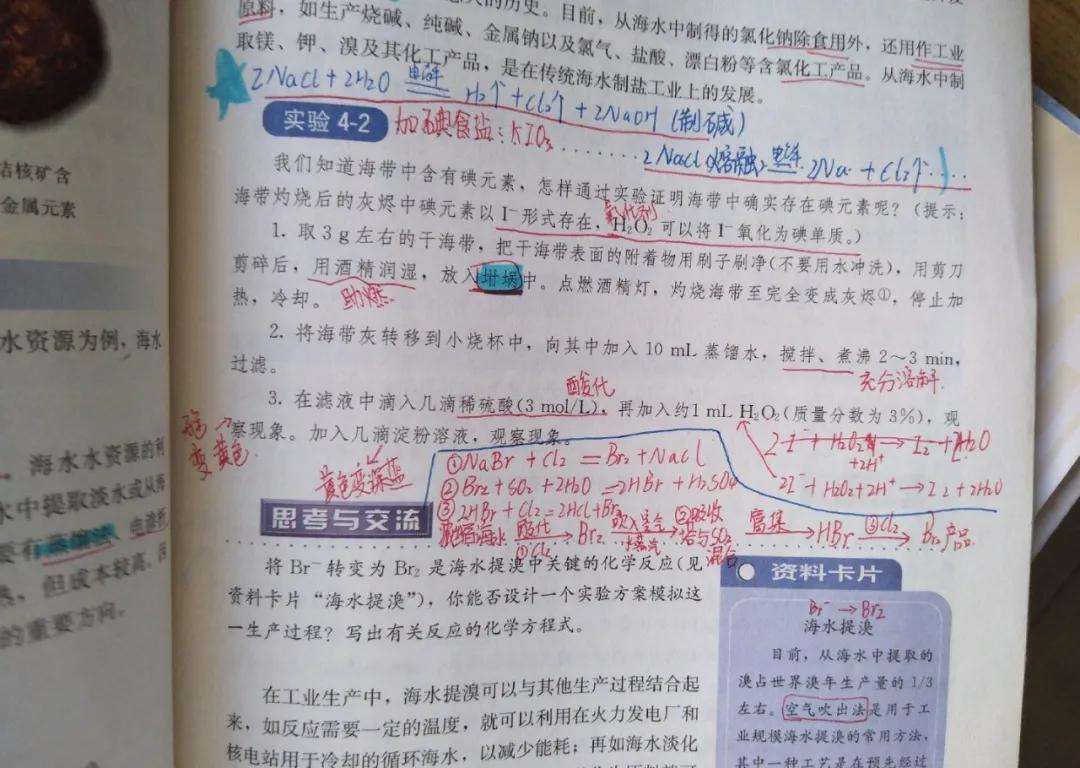 的历史。目前,从海水中制得的氯化钠除食用外,还用作工业
原料,如生产烧碱、纯碱、金属钠以及氯气、盐酸、漂白粉等含氯化工产品。从海水中制
取镁、钾、溴及其化工产品,是在传统海水制盐工业上的发展。
2NaCl + 2H₂O 电解 H₂↑ + Cl₂↑ + 2NaOH (制碱)
实验 4-2 加碘食盐:KIO₃
2NaCl(熔融) 电解 2Na + Cl₂↑
我们知道海带中含有碘元素,怎样通过实验证明海带中确实存在碘元素呢?(提示:
氧化剂
海带灼烧后的灰烬中碘元素以 I⁻ 形式存在,H₂O₂ 可以将 I⁻ 氧化为碘单质。)
1. 取 3 g 左右的干海带,把干海带表面的附着物用刷子刷净(不要用水冲洗),用剪刀
剪碎后,用酒精润湿,放入坩埚中。点燃酒精灯,灼烧海带至完全变成灰烬①,停止加
热,冷却。 助燃
2. 将海带灰转移到小烧杯中,向其中加入 10 mL 蒸馏水,搅拌、煮沸 2～3 min,
过滤。
充分溶解.
酸化
3. 在滤液中滴入几滴稀硫酸(3 mol/L),再加入约1 mL H₂O₂(质量分数为 3%),观
察现象。加入几滴淀粉溶液,观察现象。
变黄色.
2I⁻ + H₂O₂ + 2H⁺ → I₂ + 2H₂O
黄色变深蓝
①NaBr + Cl₂ = Br₂ + NaCl
②Br₂ + SO₂ + 2H₂O = 2HBr + H₂SO₄
③2HBr + Cl₂ = 2HCl + Br₂
浓缩海水 酸化 ①Cl₂ → Br₂ 吹入空气 水蒸气 ②吸收塔与SO₂混合 富集 → HBr ③Cl₂ → Br₂产品
思考与交流
将 Br⁻ 转变为 Br₂ 是海水提溴中关键的化学反应(见
资料卡片“海水提溴”),你能否设计一个实验方案模拟这
一生产过程?写出有关反应的化学方程式。
在工业生产中,海水提溴可以与其他生产过程结合起
来,如反应需要一定的温度,就可以利用在火力发电厂和
核电站用于冷却的循环海水,以减少能耗;再如海水淡化
资料卡片
Br⁻ → Br₂
海水提溴
目前,从海水中提取的
溴占世界溴年生产量的 1/3
左右。空气吹出法是用于工
业规模海水提溴的常用方法,
其中一种工艺是在预先经过
结核矿含
金属元素
水资源为例,海水
海水水资源的利
水中提取淡水或从海
要有蒸馏法、电渗析
热,但成本较高,因
的重要方向。